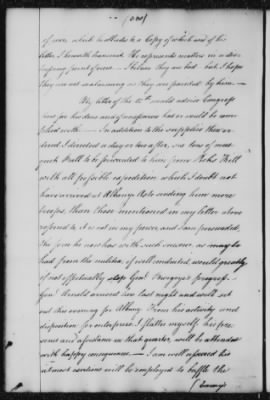 (210)
of mine which he alludes to a Copy of which and of his
Letter I herewith transmit. He represents matters in a dis-
tressing point of view — I believe they are bad but I hope
they are not so alarming as they are painted by him. —
My letter of the 12th would advise Congress
how far his views and requisitions had or would be com-
plied with. — In addition to the supplies then or-
dered I directed a day or two after, six tons of mus-
quet Ball to be forwarded to him from Litchfield
with all possible expedition which I doubt not
have arrived at Albany. As to sending him more
troops, than those mentioned in my letter above
referred to it is not in my power, and I am persuaded,
the force he now has with such succour, as may be
had from the militia, if well conducted, would greatly
if not effectually stop Genl Burgoyne's progress. —
Genl Arnold arrived here last night and will set
out this evening for Albany. From his activity and
disposition for enterprize I flatter myself his pre-
sence and assistance in that quarter, will be attended
with happy consequences. — I am well assured his
utmost exertions will be employed to baffle the
(Enemy's